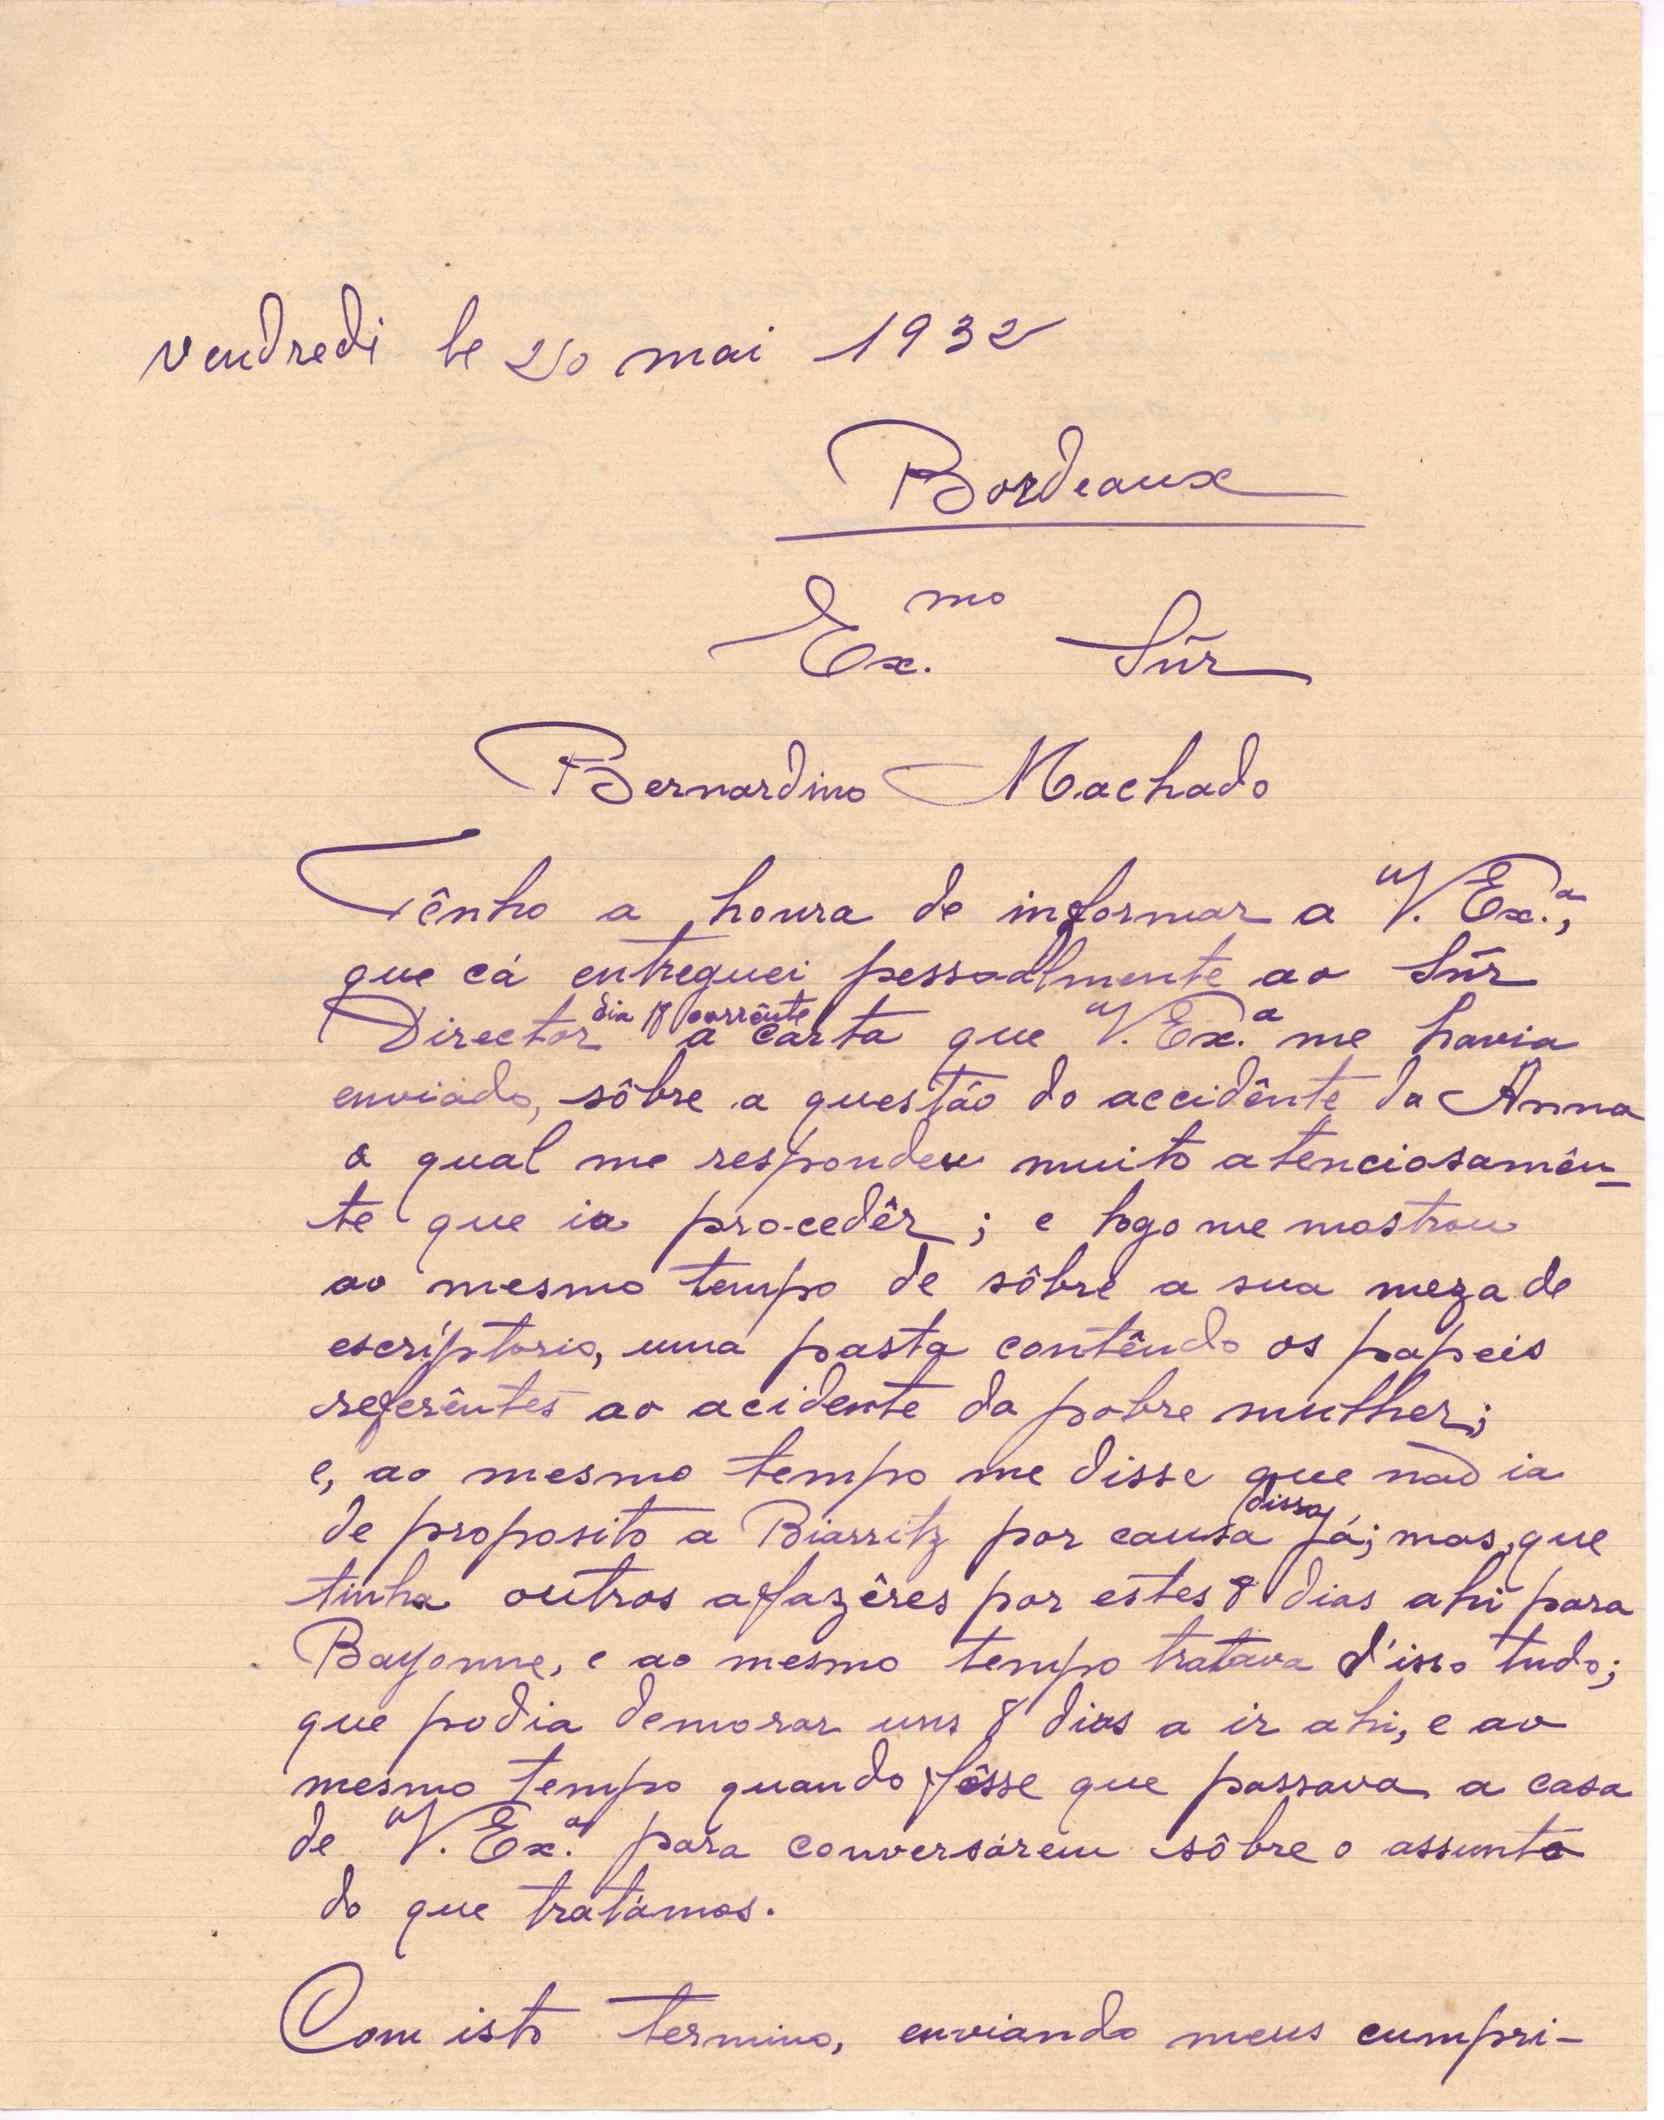 vendredi le 20 mai 1932
Bordeaux
Ex.mo Sñr
Bernardino Machado
Tênho a honra de informar a V. Ex.a,
que cá entreguei pessoalmente ao Sñr
Director dia 18 corrênte a carta que V. Ex.a me havia
enviado, sôbre a questão do accidênte da Anna
o qual me respondeu muito atenciosamên-
te que ia procedêr; e logo me mostrou
ao mesmo tempo de sôbre a sua meza de
escriptorio, uma pasta contêndo os papeis
referêntes ao acidente da pobre mulher;
e, ao mesmo tempo me disse que não ia
de proposito a Biarritz por causa disso já; mas, que
tinha outros afazêres por estes 8 dias ahi para
Bayonne, e ao mesmo tempo tratava d'isso tudo;
que podia demorar uns 8 dias a ir ahi, e ao
mesmo tempo quando fôsse que passava a casa
de V. Ex.a para conversárem sôbre o assunto
do que tratámos.
Com isto termino, enviando meus cumpri-